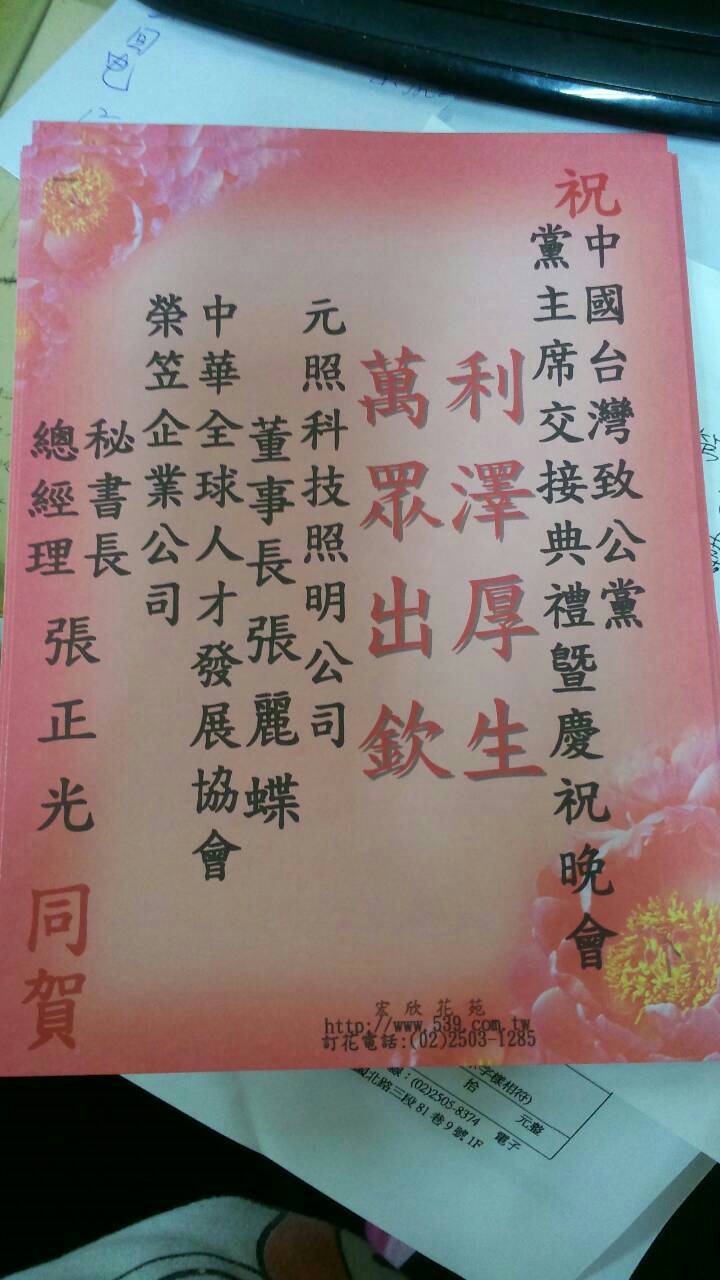 祝
中國台灣致公黨
黨主席交接典禮暨慶祝晚會
利澤厚生
萬眾出欽
元照科技照明公司
董事長張麗蝶
中華全球人才發展協會
榮笠企業公司
秘書長
總經理
張正光
同賀
宏欣花苑
http://www.539.com.tw
訂花電話:(02)2503-1285
字樣相符)
:(02)2505-8374
拾 元整
北路三段81巷9號1F 電子
回